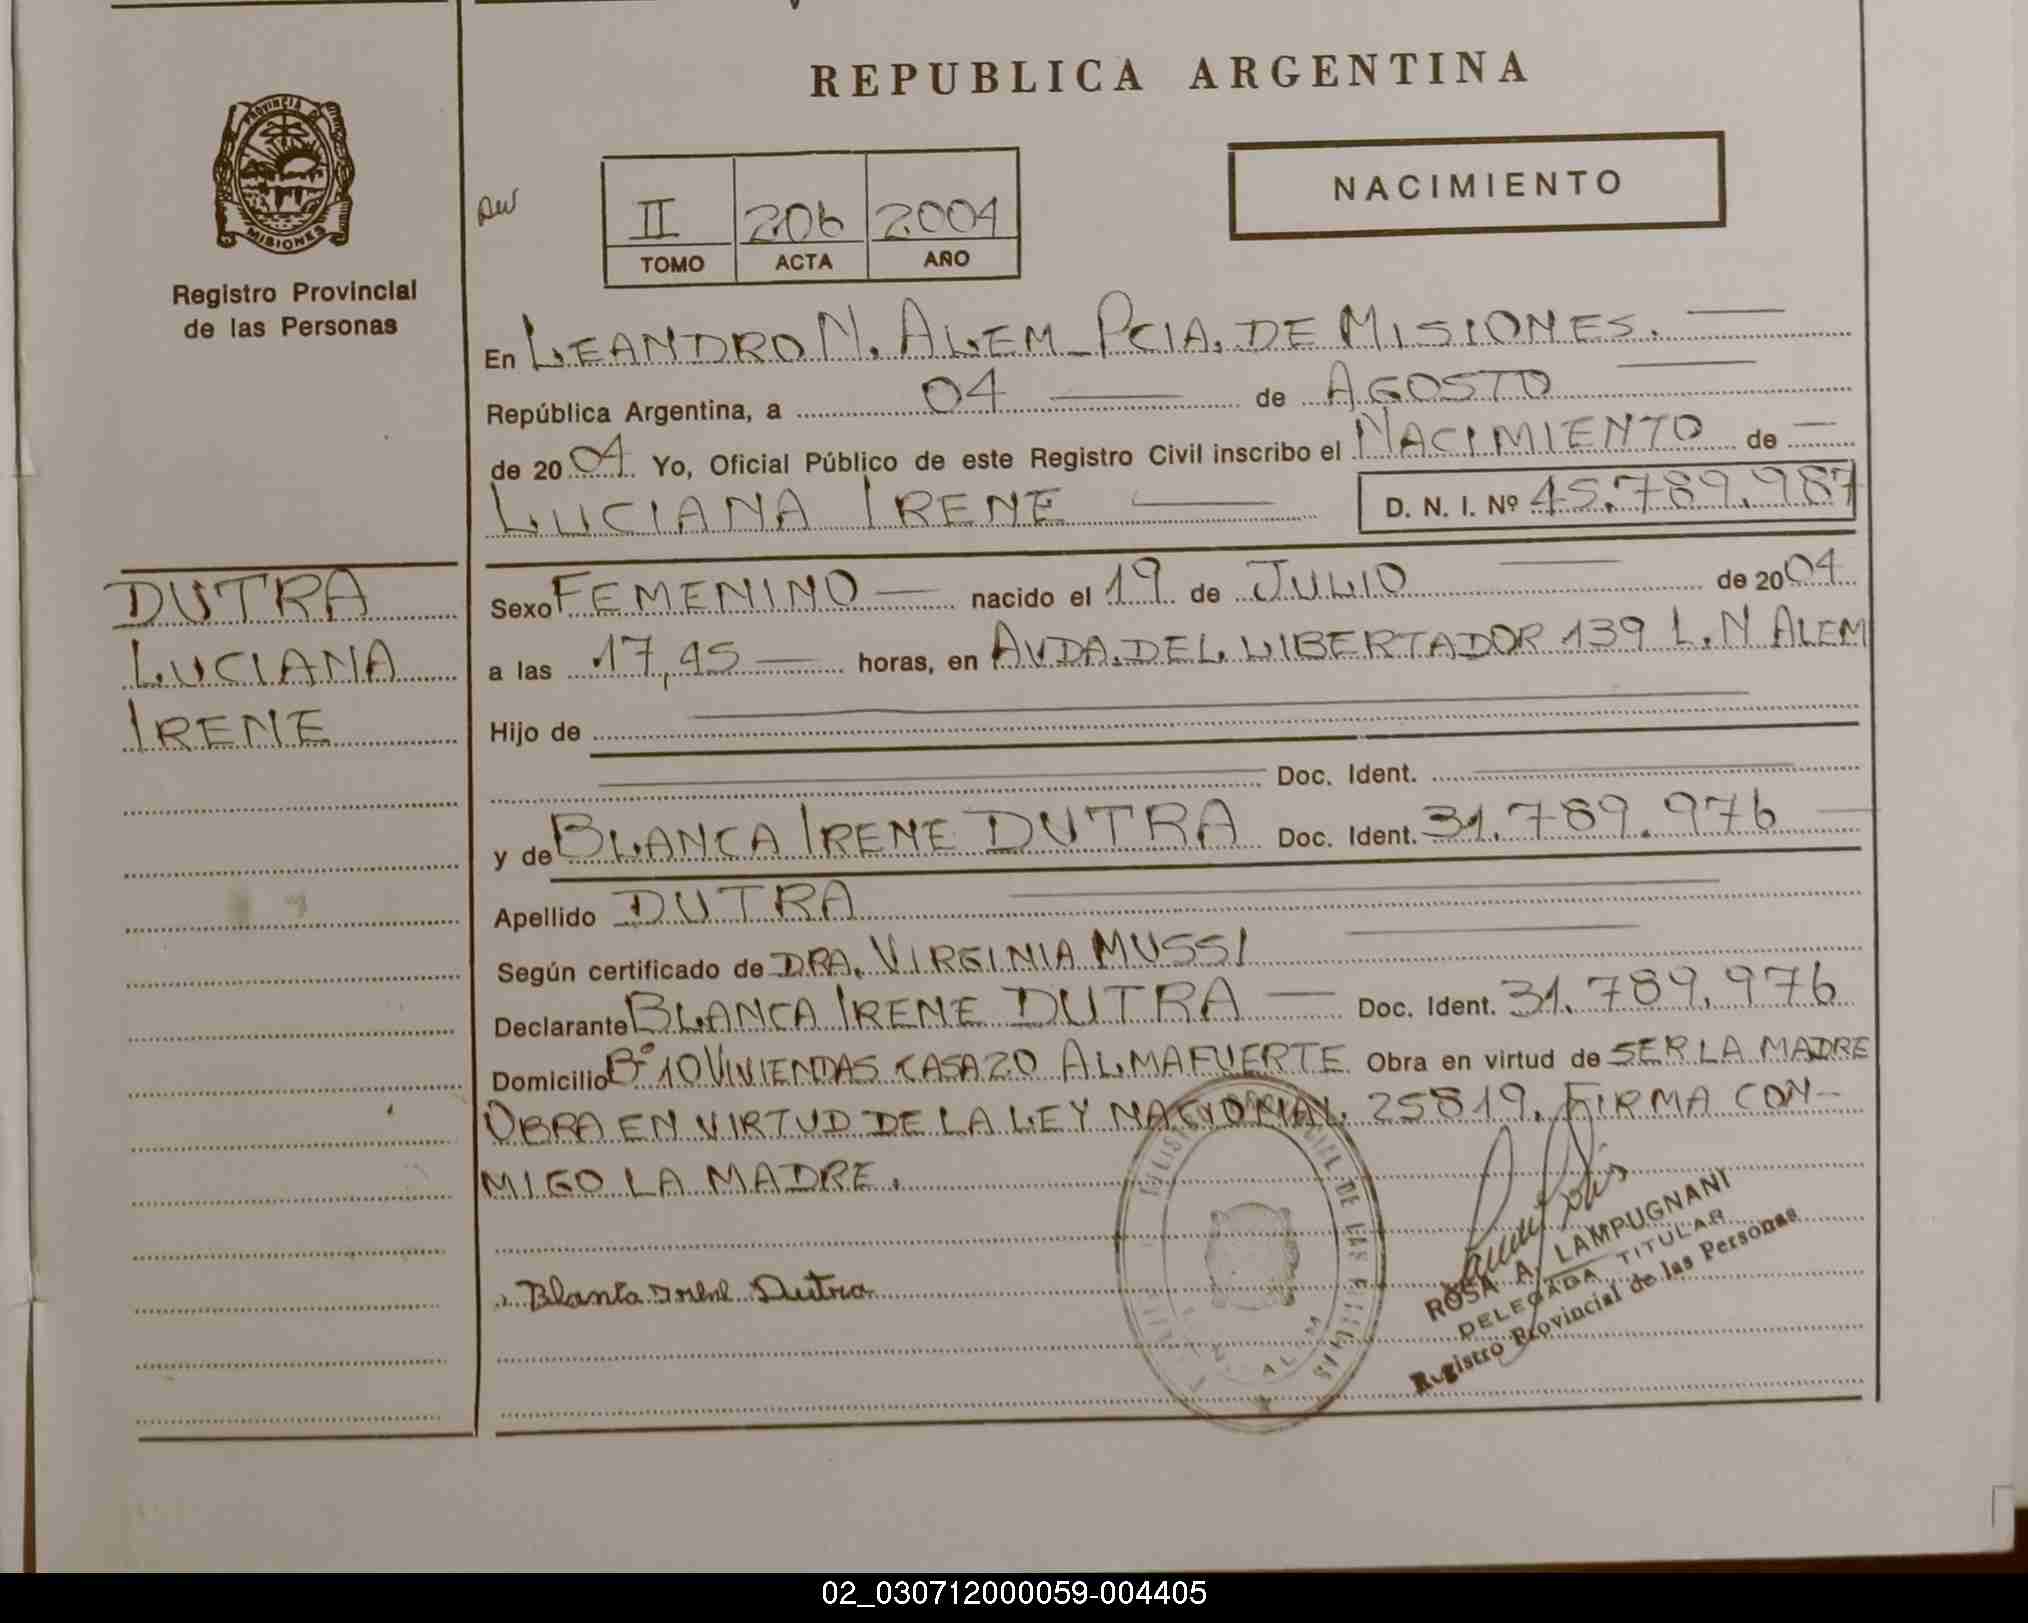 REPUBLICA ARGENTINA
PROVINCIA DE
MISIONES
Registro Provincial
de las Personas
II 206 2004
TOMO ACTA AÑO
NACIMIENTO
En LEANDRO N. ALEM - PCIA. DE MISIONES.
República Argentina, a 04 de AGOSTO
de 2004 Yo, Oficial Público de este Registro Civil inscribo el NACIMIENTO de
LUCIANA IRENE D. N. I. Nº 45.789.987
DUTRA
LUCIANA
IRENE
Sexo FEMENINO nacido el 19 de JULIO de 2004
a las 17,45 horas, en AVDA. DEL LIBERTADOR 139 L. N. ALEM
Hijo de
Doc. Ident.
y de BLANCA IRENE DUTRA Doc. Ident. 31.789.976
Apellido DUTRA
Según certificado de DRA. VIRGINIA MUSSI
Declarante BLANCA IRENE DUTRA Doc. Ident. 31.789.976
Domicilio Bº 10 VIVIENDAS CASA 20 ALMAFUERTE Obra en virtud de SER LA MADRE
OBRA EN VIRTUD DE LA LEY NACIONAL. 25819. FIRMA CON-
MIGO LA MADRE.
Blanca Irene Dutra
ROSA A. LAMPUGNANI
DELEGADA TITULAR
Registro Provincial de las Personas
02_030712000059-004405